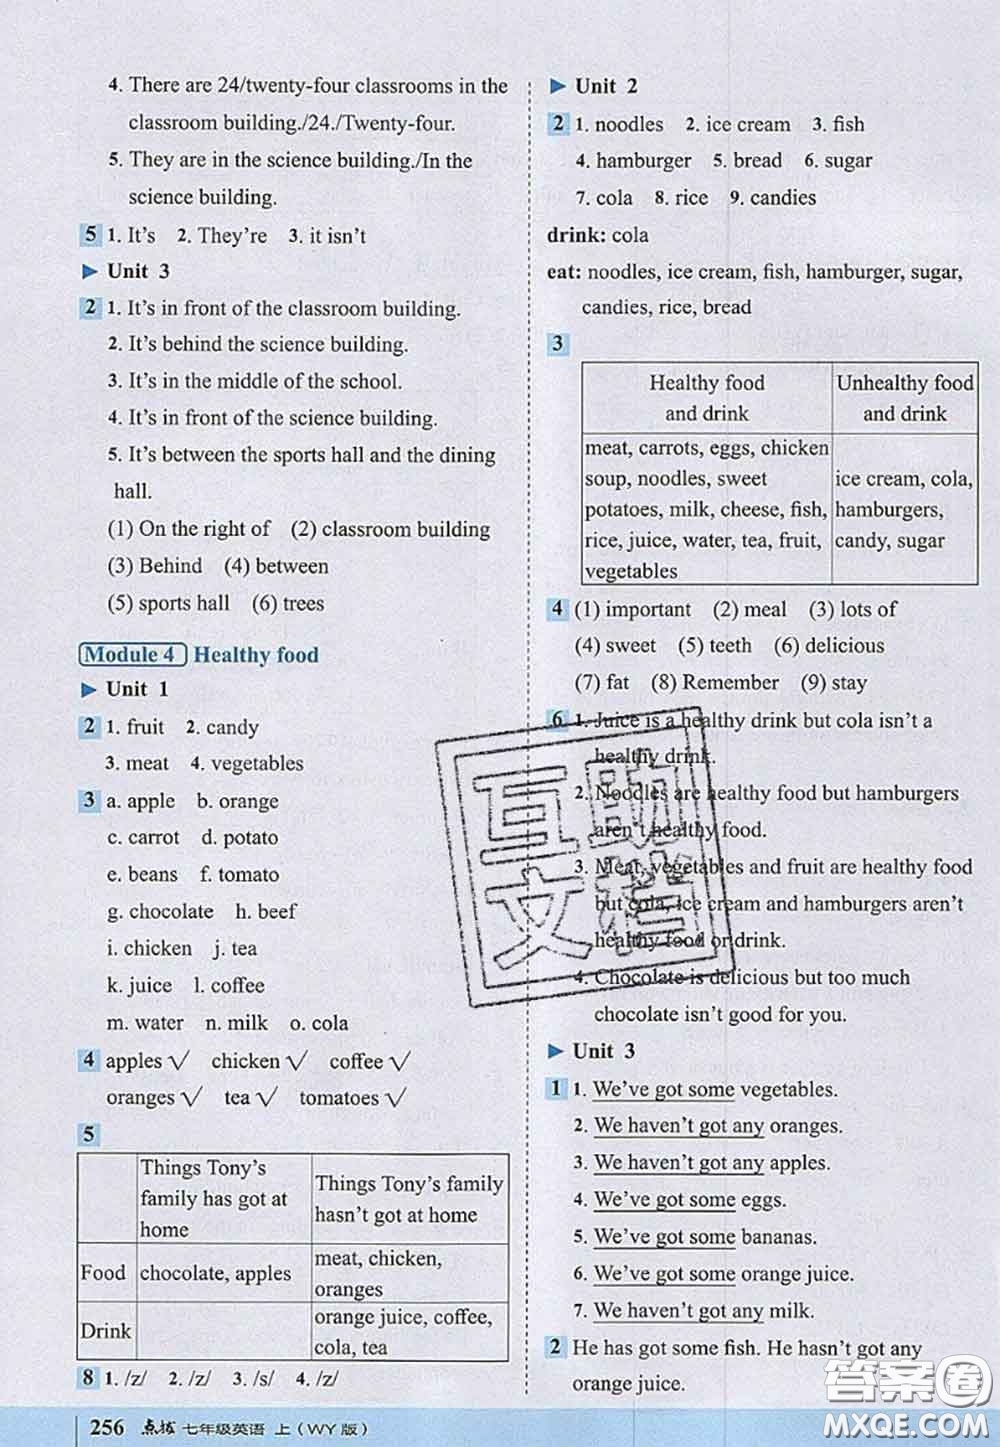 4. There are 24/twenty-four classrooms in the
classroom building./24./Twenty-four.
5. They are in the science building./In the
science building.
5 1. It's 2. They're 3. it isn't
▶ Unit 3
2 1. It's in front of the classroom building.
2. It's behind the science building.
3. It's in the middle of the school.
4. It's in front of the science building.
5. It's between the sports hall and the dining
hall.
(1) On the right of (2) classroom building
(3) Behind (4) between
(5) sports hall (6) trees
Module 4 Healthy food
▶ Unit 1
2 1. fruit 2. candy
3. meat 4. vegetables
3 a. apple b. orange
c. carrot d. potato
e. beans f. tomato
g. chocolate h. beef
i. chicken j. tea
k. juice l. coffee
m. water n. milk o. cola
4 apples √ chicken √ coffee √
oranges √ tea √ tomatoes √
5
Things Tony's
family has got at
home
Things Tony's family
hasn't got at home
Food chocolate, apples
meat, chicken,
oranges
Drink
orange juice, coffee,
cola, tea
8 1. /z/ 2. /z/ 3. /s/ 4. /z/
▶ Unit 2
2 1. noodles 2. ice cream 3. fish
4. hamburger 5. bread 6. sugar
7. cola 8. rice 9. candies
drink: cola
eat: noodles, ice cream, fish, hamburger, sugar,
candies, rice, bread
3
Healthy food
and drink
Unhealthy food
and drink
meat, carrots, eggs, chicken
soup, noodles, sweet
potatoes, milk, cheese, fish,
rice, juice, water, tea, fruit,
vegetables
ice cream, cola,
hamburgers,
candy, sugar
4 (1) important (2) meal (3) lots of
(4) sweet (5) teeth (6) delicious
(7) fat (8) Remember (9) stay
6 1. Juice is a healthy drink but cola isn't a
healthy drink.
2. Noodles are healthy food but hamburgers
aren't healthy food.
3. Meat, vegetables and fruit are healthy food
but cola, ice cream and hamburgers aren't
healthy food or drink.
4. Chocolate is delicious but too much
chocolate isn't good for you.
▶ Unit 3
1 1. We've got some vegetables.
2. We haven't got any oranges.
3. We haven't got any apples.
4. We've got some eggs.
5. We've got some bananas.
6. We've got some orange juice.
7. We haven't got any milk.
2 He has got some fish. He hasn't got any
orange juice.
互助
文档
答案圈
MXQE.COM
256 点拨 七年级英语 上(WY版)